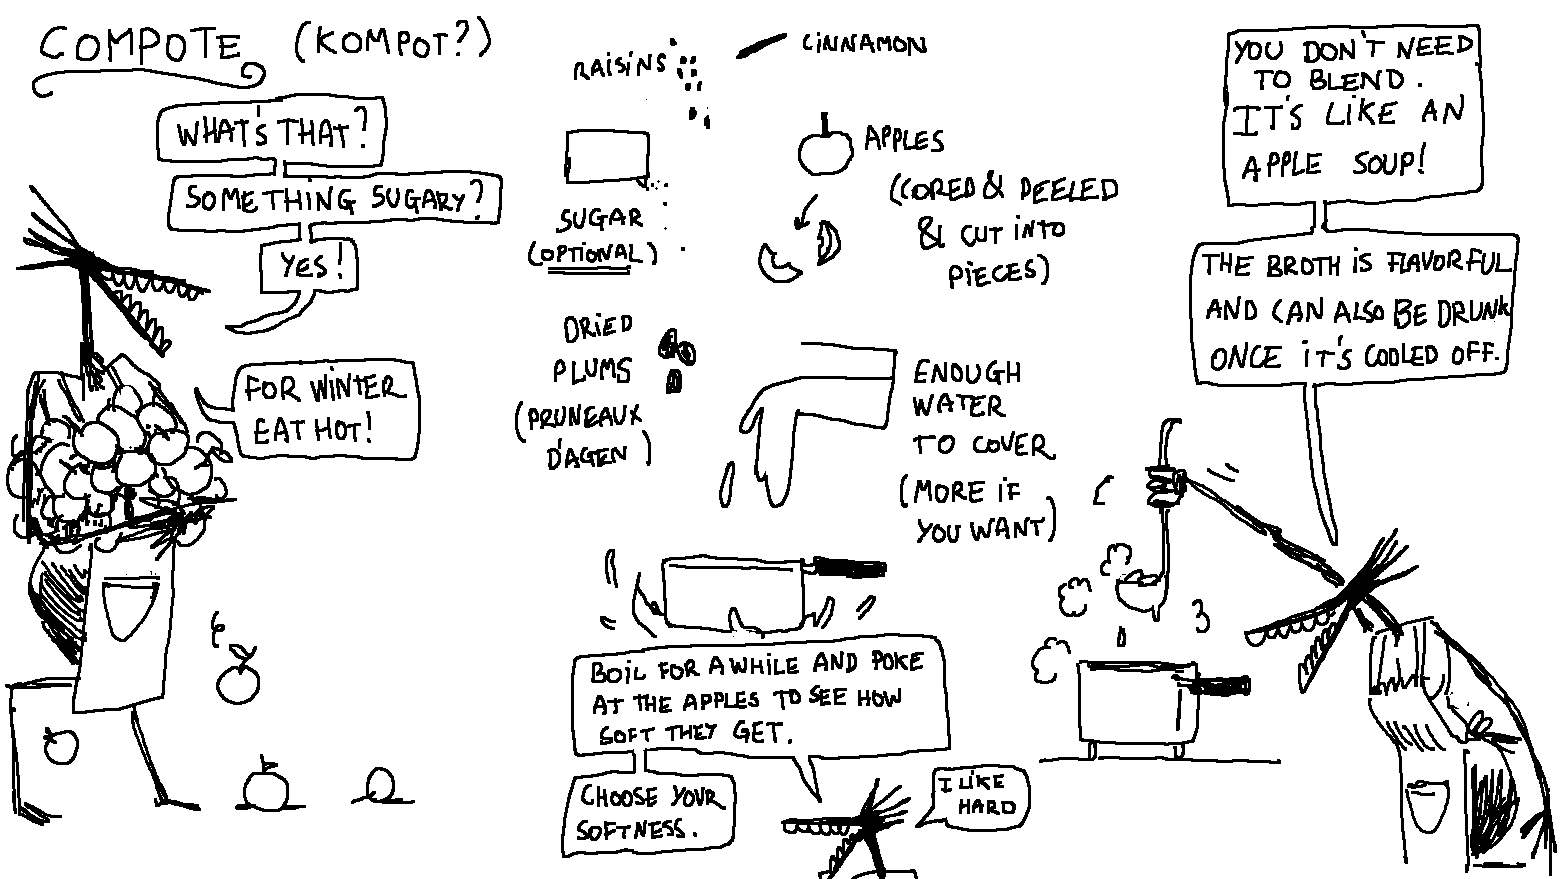 COMPOTE (KOMPOT?)
WHAT'S THAT?
SOMETHING SUGARY?
YES!
FOR WINTER
EAT HOT!
RAISINS
CINNAMON
SUGAR
(OPTIONAL)
APPLES
(CORED & PEELED
& CUT INTO
PIECES)
DRIED
PLUMS
(PRUNEAUX
D'AGEN)
ENOUGH
WATER
TO COVER
(MORE IF
YOU WANT)
BOIL FOR A WHILE AND POKE
AT THE APPLES TO SEE HOW
SOFT THEY GET.
CHOOSE YOUR
SOFTNESS.
I LIKE
HARD
YOU DON'T NEED
TO BLEND.
IT'S LIKE AN
APPLE SOUP!
THE BROTH IS FLAVORFUL
AND CAN ALSO BE DRUNK
ONCE IT'S COOLED OFF.